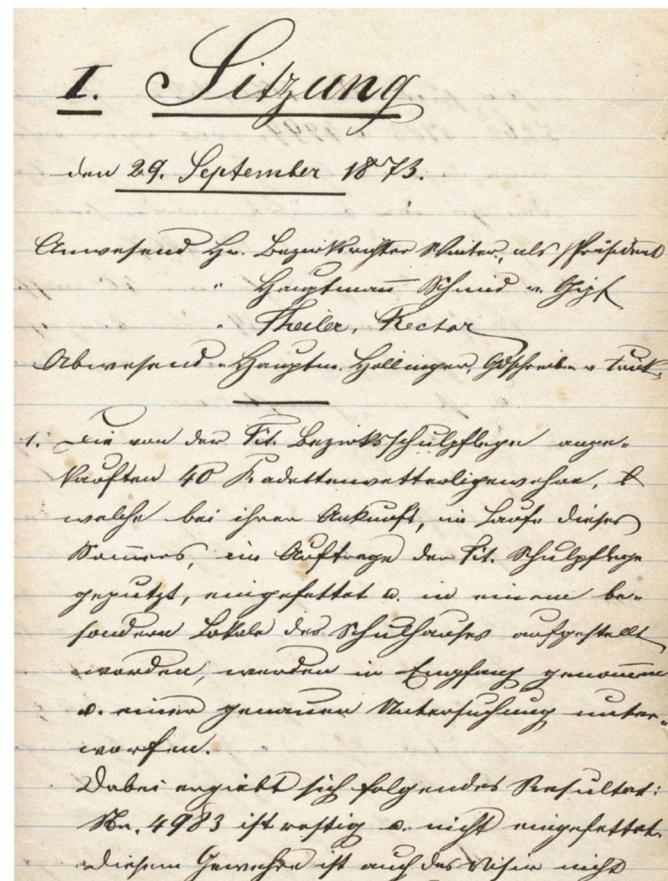 I. Sitzung
den 29. September 1873.
Anwesend Hr. Bezirksrichter Winter, als Präsident
" Hauptmann Schmid v. Gipf
" Theiler, Rector
Abwesend " Hauptm. Hollinger, Gdschreiber v.
1. Die von der Tit. Bezirksschulpflege ange-
kauften 40 Kadettenvetterligewehre,
welche bei ihrer Ankunft, im Laufe dieses
Sommers, im Auftrage der Tit. Schulpflege
geputzt, eingefettet u. in einem be-
sondern Lokale des Schulhauses aufgestellt
worden, werden in Empfang genommen
u. einer genauen Untersuchung unter-
worfen.
Dabei ergiebt sich folgendes Resultat:
No. 4983 ist rostig u. nicht eingefettet.
diesem Gewehre ist auch das Visir nicht